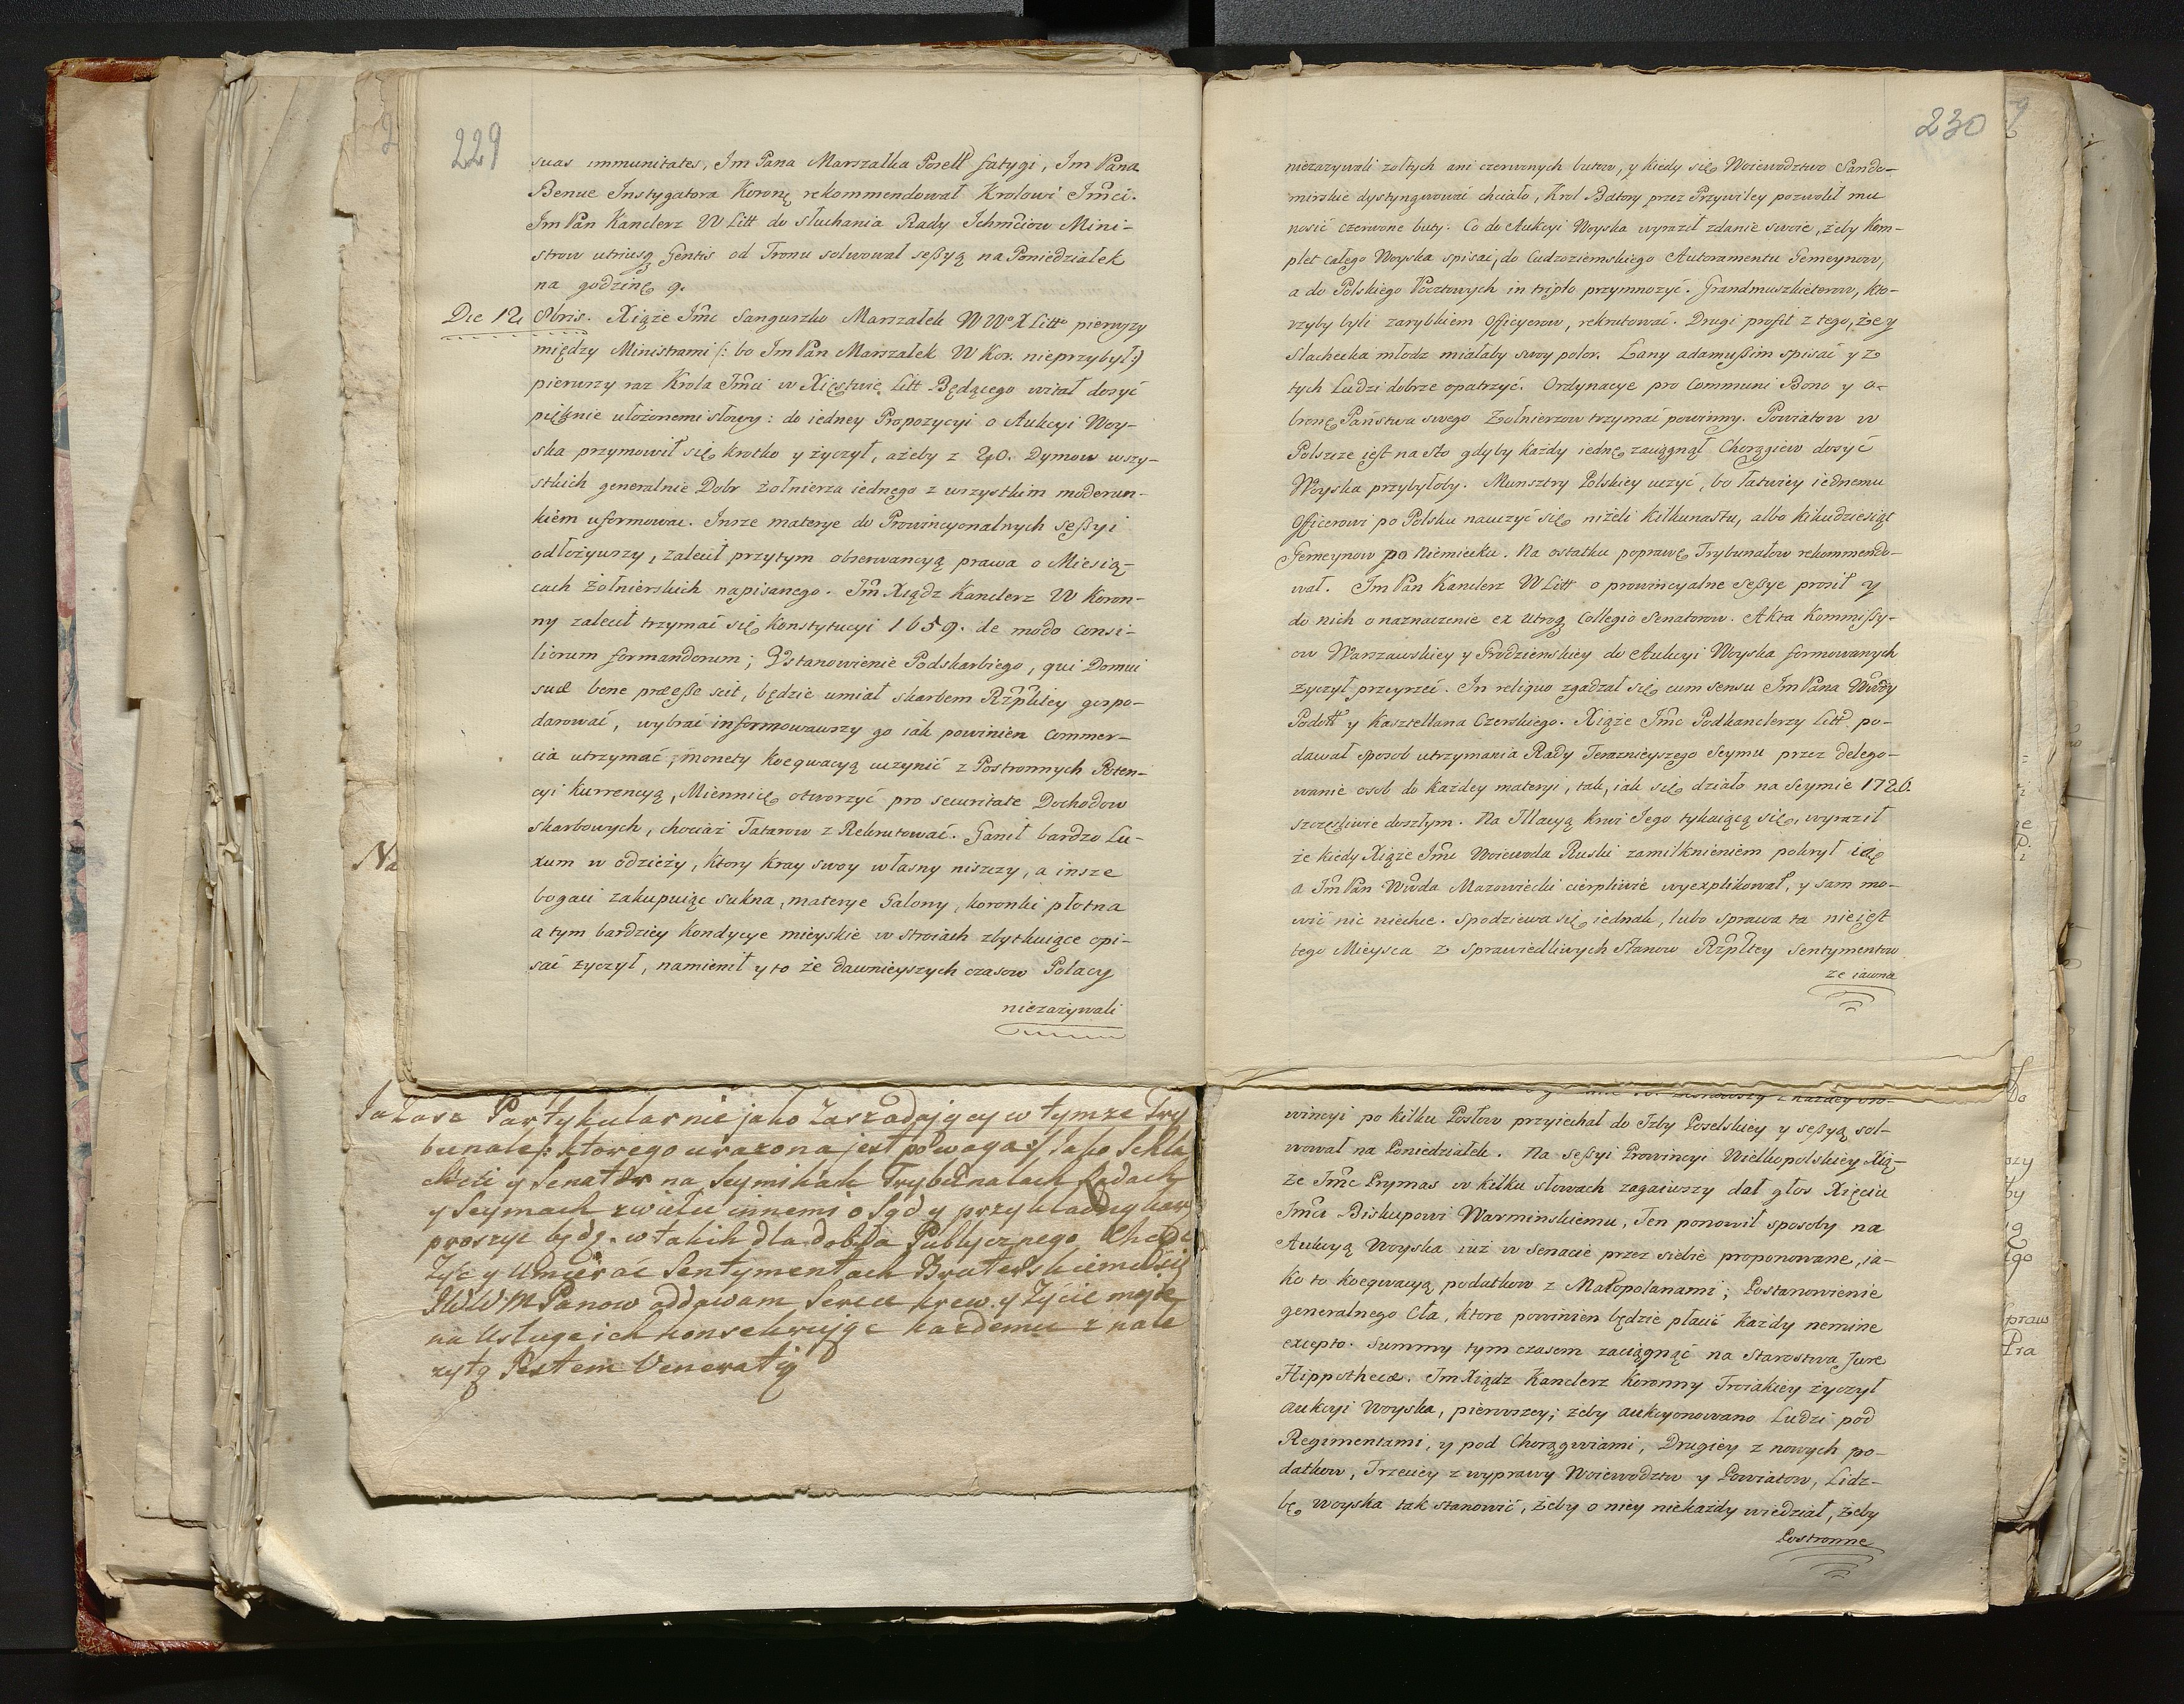 229
suas immunitates, Jm Pana Marszałka Posell fatygi, Jm Pana
Benue Instygatora Koronę rekommendował Krolowi Jmći.
Jm Pan Kanclerz W Litt do słuchania Rady Ichmćiow Mini-
strow utriusq Gentis od Tronu solwował seßyą na Poniedziałek
na godzinę 9.
Die 12 8bris. Xiąże Jmć Sanguszko Marszałek W Wo X Litto pierwszy
między Ministrami /: bo Jm Pan Marszałek W Kor. nieprzybył :/
pierwszy raz Krola Jmći w Xięstwie Litt Będącego witał dosyć
pięknie ułożonemi słowy: do iedney Propozycyi o Aukcyi Woy-
ska przymowił się krotko y życzył, ażeby z 20. Dymow wszy-
stkich generalnie Dobr żołnierza iednego z wszystkim moderun-
kiem uformować. Insze materye do Prowincyonalnych seßyi
odłożywszy, zalecił przytym obserwancyą prawa o Miesią-
cach żołnierskich napisanego. Jm Xiądz Kanclerz W Koron-
ny zalecił trzymać się Konstytucyi 1659. de modo consi-
liorum formandorum; Ustanowienie Podskarbiego, qui Domui
suæ bene præeße scit, będzie umiał skarbem Rzpltey gospo-
darować, wybrać informowawszy go iak powinien Commer-
cia utrzymać, monety koeqwacyą uczynić z Postronnych Poten-
cyi kurrencyą, Miennicę otworzyć pro securitate Dochodow
skarbowych, chociaż Tatarow z Rekrutować. Ganił bardzo Lu-
xum w odzieży, ktory kray swoy własny niszczy, a insze
bogaci zakupuiąc sukna, materye Galony, koronki płotna
a tym bardziey Kondycye mieyskie w stroiach zbytkuiące opi-
sać życzył, namienił y to że dawnieyszych czasow Polacy
niezażywali
Na
Ja zasz Partykularnie jako Zaszadający w tymże Try
bunale /: ktorego urazona jest powaga :/ jako Szla
chcic y Senator na Seymikach Trybunałach Radach
y Seymach z wielu innemi o Sądy przykładny karz
proszę będę. w takich dla dobra Publicznego Chcąc
Zyc y Umierać Sentymentach Braterskiemu się
JWWM Panow oddawam Serce krew y Zycie moje
na Usługe ich konsekruję kazdemu z nale
zytą Jestem Veneratią
230
niezażywali żołtych ani czerwonych butow, y kiedy się Woiewodztwo Sando-
mirskie dystyngwować chciało, Krol Batory przez Przywiley pozwolił mu
nosić czerwone buty. Co do Aukcyi Woyska wyraził zdanie swoie, żeby Kom-
plet całego Woyska spisać, do Cudzoziemskiego Autoramentu Gemeynow,
a do Polskiego Pocztowych in triplo przymnożyć. Grandmuszkieterow, kto-
rzyby byli zarybkiem Officyerow, rekrutować. Drugi profit z tego, że y
słachecka młodz miałaby swoy polor. Łany adamußim spisać y z
tych Ludzi dobrze opatrzyć. Ordynacye pro Communi Bono y o-
bronę Państwa swego Żołnierzow trzymać powinny. Powiatow w
Polszcze iest na sto gdyby każdy iednę zaciągnął Chorągiew dosyć
Woyska przybyłoby. Munsztry Polskiey uczyć, bo łatwiey iednemu
Officerowi po Polsku nauczyć się niżeli kilkunastu, albo kilkudziesiąt
Gemeynow po Niemiecku. Na ostatku poprawę Trybunałow rekommendo-
wał. Jm Pan Kanclerz W Litt o prowincyalne seßye prosił y
do nich o naznaczenie ex utroq Collegio Senatorow. Akta Kommißy-
ow Warszawskiey y Grodzienskiey do Aukcyi Woyska formowanych
życzył przeyrzeć. In reliquo zgadzał się cum sensu Jm Pana Wwdy
Podoll y Kasztellana Czerskiego. Xiąże Jmć Podkanclerzy Litt po-
dawał sposob utrzymania Rady Teraznieyszego Seymu przez delego-
wanie osob do każdey materyi, tak, iak się działo na Seymie 1726.
szczęśliwie doszłym. Na Illacyą krwi Jego tykaiącą się, wyraził
że kiedy Xiąże Jmć Woiewoda Ruski zamilknieniem pokrył ią
a Jm Pan Wwda Mazowiecki cierpliwie wyexplikował, y sam mo-
wić nic niechce. Spodziewa się iednak, lubo sprawa ta nieiest
tego Mieysca z sprawiedliwych Stanow Rzpltey Sentymentow
ze iawna
wincyi po kilku Posłow przyiechał do Izby Poselskiey y seßyą sol-
wował na Poniedziałek. Na seßyi Prowincyi Wielkopolskiey Xią-
że Jmć Prymas w kilku słowach zagaiwszy dał głos Xięciu
Jmći Biskupowi Warminskiemu, Ten ponowił sposoby na
Aukcyą Woyska iuż w Senacie przez siebie proponowane, ia-
ko to koeqwacyą podatkow z Małopolanami; Postanowienie
generalnego Cła, ktore powinien będzie płacić każdy nemine
excepto. Summy tym czasem zaciągnąć na Starostwa Jure
Hippothecæ. Jm Xiądz Kanclerz Koronny Troiakiey życzył
aukcyi Woyska, pierwszey; żeby aukcyonowano Ludzi pod
Regimentami, y pod Chorągwiami, Drugiey z nowych po-
datkow, Trzeciey z wyprawy Woiewodztw y Powiatow, Lidz-
bę woyska tak stanowić, żeby o niey niekażdy wiedział, żeby
Postronne